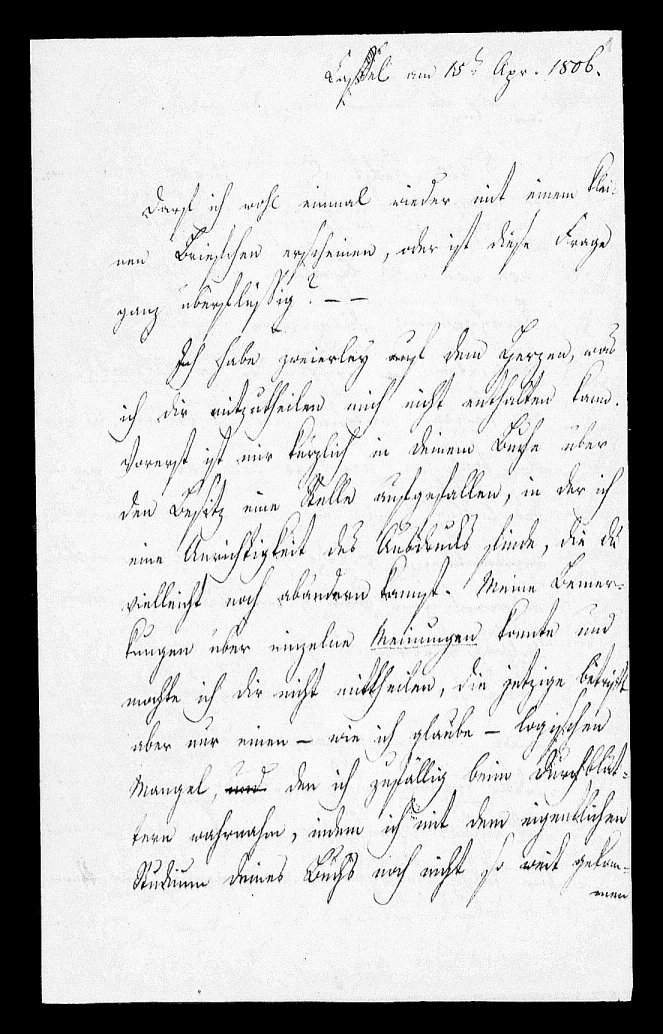 Cassel am 15t Apr. 1806.
Darf ich wohl einmal wieder mit einem klei-
nen Briefchen erscheinen, oder ist diese Frage
ganz überflüssig? – –
Ich habe zweierley auf dem Herzen, was
ich dir mitzutheilen mich nicht enthalten kann.
Vorerst ist mir kürzlich in deinem Buche über
den Besitz eine Stelle aufgefallen, in der ich
eine Unrichtigkeit des Ausdrucks finde, die du
vielleicht noch abändern kannst. Meine Bemer-
kungen über einzelne Meinungen konnte und
mochte ich dir nicht mittheilen, die jetzige betrifft
aber nur einen – wie ich glaube – logischen
Mangel, und den ich zufällig beim Durchblät-
tern wahrnahm, indem ich mit dem eigentlichen
Studium deines Buchs noch nicht so weit gekom-
men